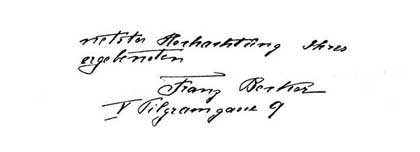 Hochachtung Ihres
ergebensten
Franz Becker
V Pilgramgasse 9